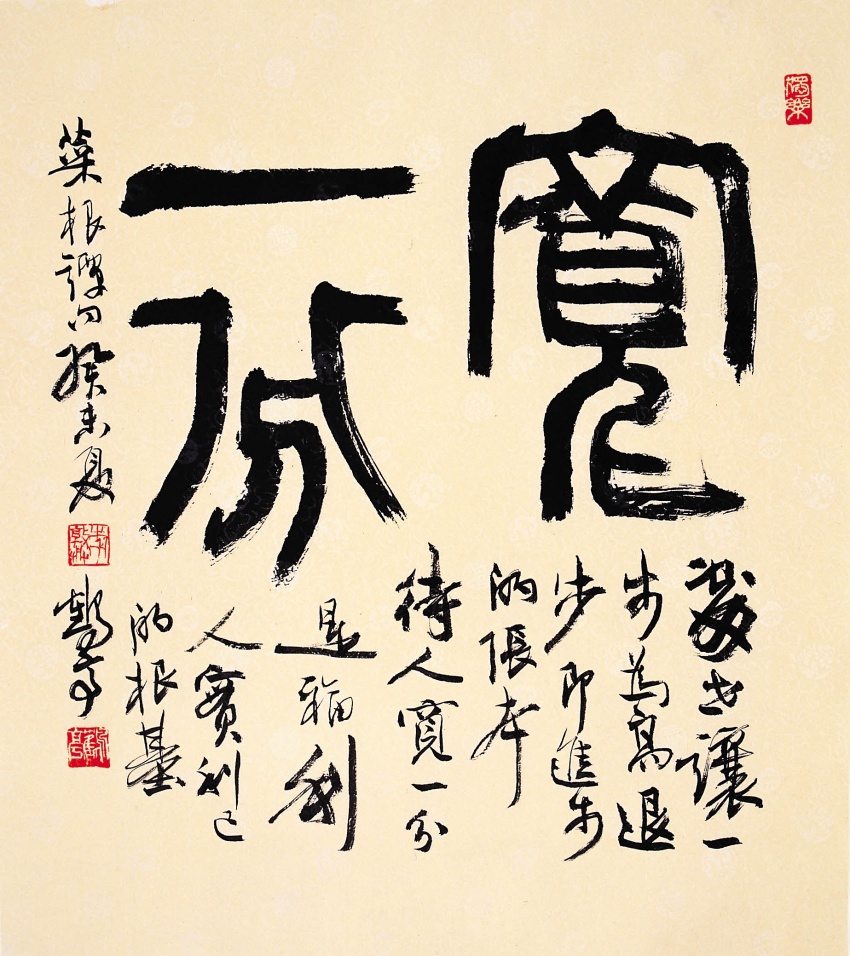 寬
一分
處世讓一
步為高退
步即進步
的張本
待人寬一分
是福利
人實利己
的根基
菜根譚句癸未夏
鶴亭
獨樂
鶴亭